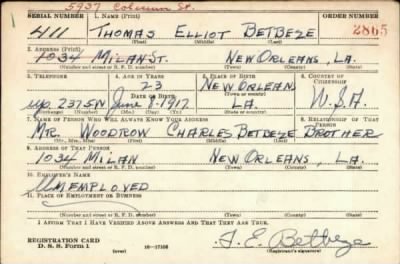 5937 Coliseum St.
SERIAL NUMBER 1. NAME (Print) ORDER NUMBER
411 THOMAS ELLIOT BETBEZE 2865
(First) (Middle) (Last)
2. ADDRESS (Print)
1034 MILAN ST. NEW ORLEANS, LA.
(Number and street or R. F. D. number) (Town) (County) (State)
3. TELEPHONE 4. AGE IN YEARS 5. PLACE OF BIRTH 6. COUNTRY OF CITIZENSHIP
23 NEW ORLEANS
DATE OF BIRTH
Up. 2375W June 8-1917 LA. U.S.A.
(Exchange) (Number) (Mo.) (Day) (Yr.) (State or country)
7. NAME OF PERSON WHO WILL ALWAYS KNOW YOUR ADDRESS 8. RELATIONSHIP OF THAT PERSON
MR. WOODROW CHARLES BETBEZE BROTHER
(Mr., Mrs., Miss) (First) (Middle) (Last)
9. ADDRESS OF THAT PERSON
1034 MILAN NEW ORLEANS, LA.
(Number and street or R. F. D. number) (Town) (County) (State)
10. EMPLOYER'S NAME
UNEMPLOYED
11. PLACE OF EMPLOYMENT OR BUSINESS
(Number and street or R. F. D. number) (Town) (County) (State)
I AFFIRM THAT I HAVE VERIFIED ABOVE ANSWERS AND THAT THEY ARE TRUE.
REGISTRATION CARD
D. S. S. Form 1 16-17105 T. E. Betbeze
(Registrant's signature)